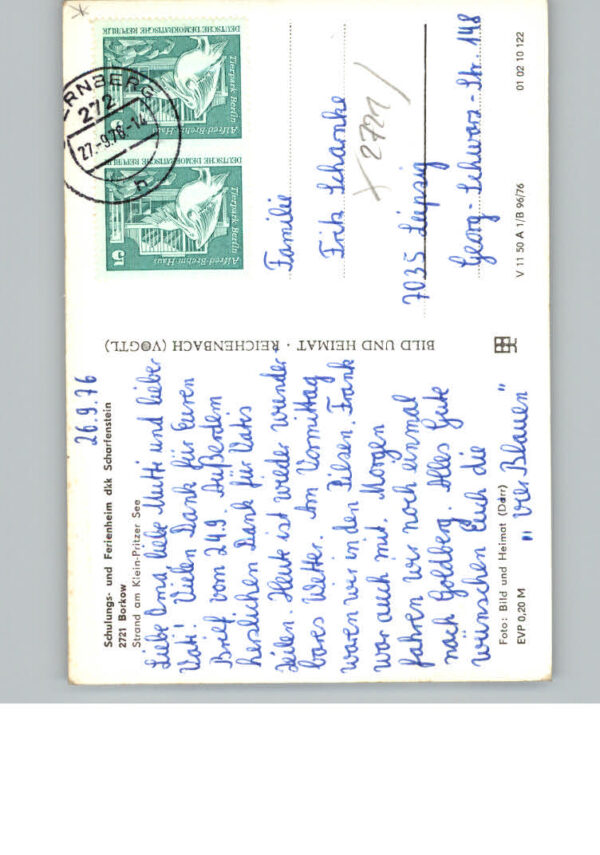 26.9.76
Schulungs- und Ferienheim dkk Scharfenstein
2721 Borkow
Strand am Klein-Pritzer See
Liebe Oma, liebe Mutti und lieber
Vati! Vielen Dank für Euren
Brief vom 24.9. Außerdem
herzlichen Dank für Vatis
Zeilen. Heute ist wieder wunder-
bares Wetter. Am Vormittag
waren wir in den Pilzen. Frank
war auch mit. Morgen
fahren wir noch einmal
nach Goldberg. Alles Gute
wünschen Euch die
"Vier Blauen"
Foto: Bild und Heimat (Darr)
EVP 0,20 M
BILD UND HEIMAT · REICHENBACH (VOGTL)
RNBERG
272
27.-9.76.-14
h
DEUTSCHE DEMOKRATISCHE REPUBLIK
Tierpark Berlin
Alfred-Brehm-Haus
5
DEUTSCHE DEMOKRATISCHE REPUBLIK
Tierpark Berlin
Alfred-Brehm-Haus
5
Familie
Fritz Scharnke
2721
7035 Leipzig
Georg-Schwarz-Str. 148
V 11 50 A 1/B 96/76
01 02 10 122